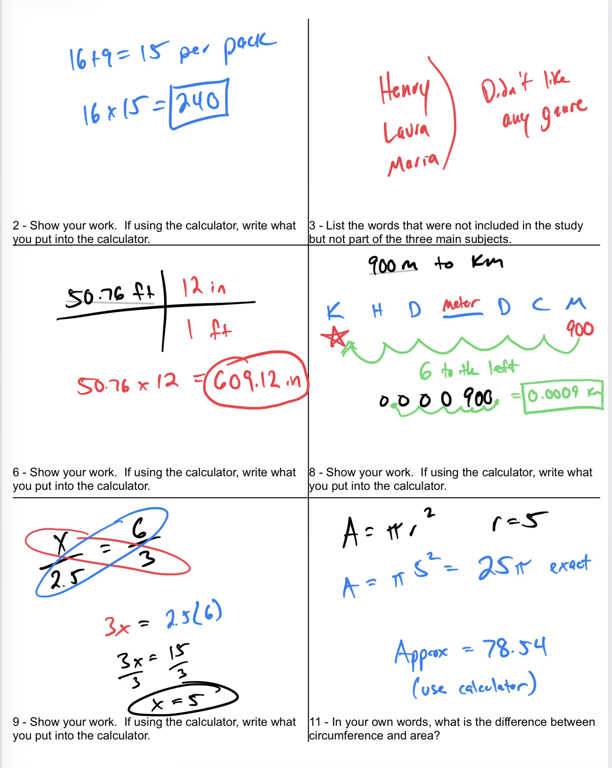 16+9 = 15 per pack
16 x 15 = 240
2 - Show your work.  If using the calculator, write what
you put into the calculator.
Henry
Laura
Maria
Didn't like
any genre
3 - List the words that were not included in the study
but not part of the three main subjects.
50.76 ft 12 in
1 ft
50.76 x 12 = 609.12 in
6 - Show your work.  If using the calculator, write what
you put into the calculator.
900 m to Km
K H D meter D C M
900
6 to the left
0.0 0 0 900. = 0.0009 Km
8 - Show your work.  If using the calculator, write what
you put into the calculator.
x/2.5 = 6/3
3x = 2.5(6)
3x/3 = 15/3
x = 5
9 - Show your work.  If using the calculator, write what
you put into the calculator.
A = πr² r = 5
A = π 5² = 25π exact
Approx = 78.54
(use calculator)
11 - In your own words, what is the difference between
circumference and area?